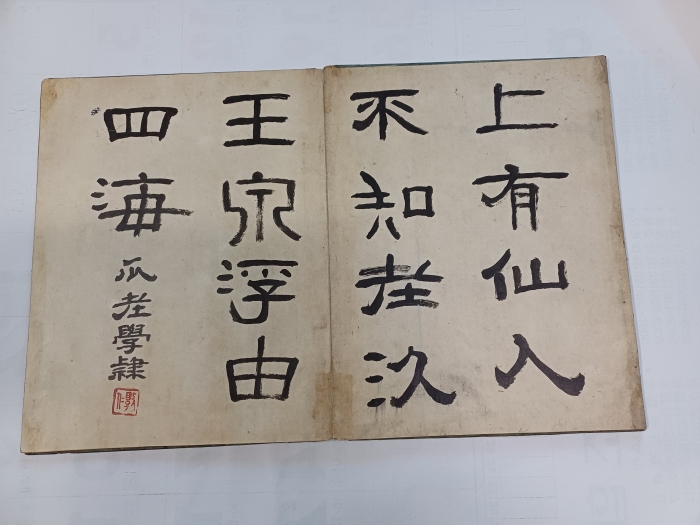 上有仙人
不知老
王泉浮由
四海
瓜老學隸